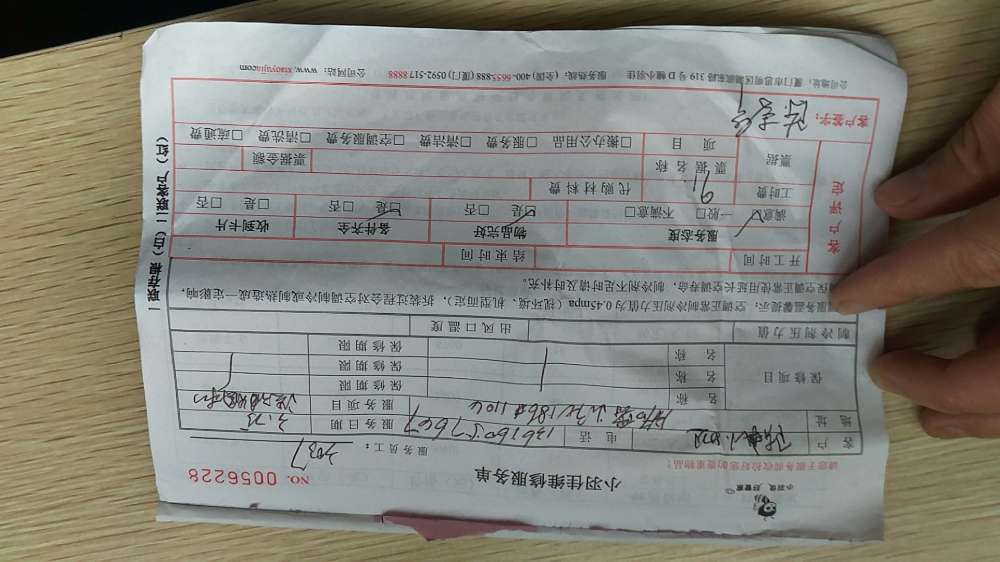 小羽佳 好管家
小羽佳维修服务单
NO. 0056228
请您于服务前收捡好您的贵重物品!
服务员工: 3037
客户
电话
服务日期 3.25
地址
服务项目
保修项目
名称 保修期限
名称 保修期限
名称 保修期限
制冷剂压力值 出风口温度
服务温馨提示: 空调正常制冷剂压力值为0.45mpa (视环境、机型而定), 拆装过程会对空调制冷或制热造成一定影响,
保空调正常使用延长空调寿命, 制冷剂不足时请及时补充。
客户评定
开工时间 结束时间
服务态度 物品完好 备件齐全 收到卡片
满意☑ 一般□ 不满意□ 是☑ 否□ 是☑ 否□ 是□ 否□
工时费 91. 代购材料费
票据 票据名称 票据金额
项目 □搬办公用品 □服务费 □清洁费 □空调服务费 □清洗费 □疏通费
客户签字:
公司地址: 厦门市思明区湖滨东路319号D幢小羽佳 服务热线: (全国) 400-6655-888 (厦门) 0592-517 8888 公司网站: www.xiaoyujia.com
一联存根 (白) 二联客户 (红)